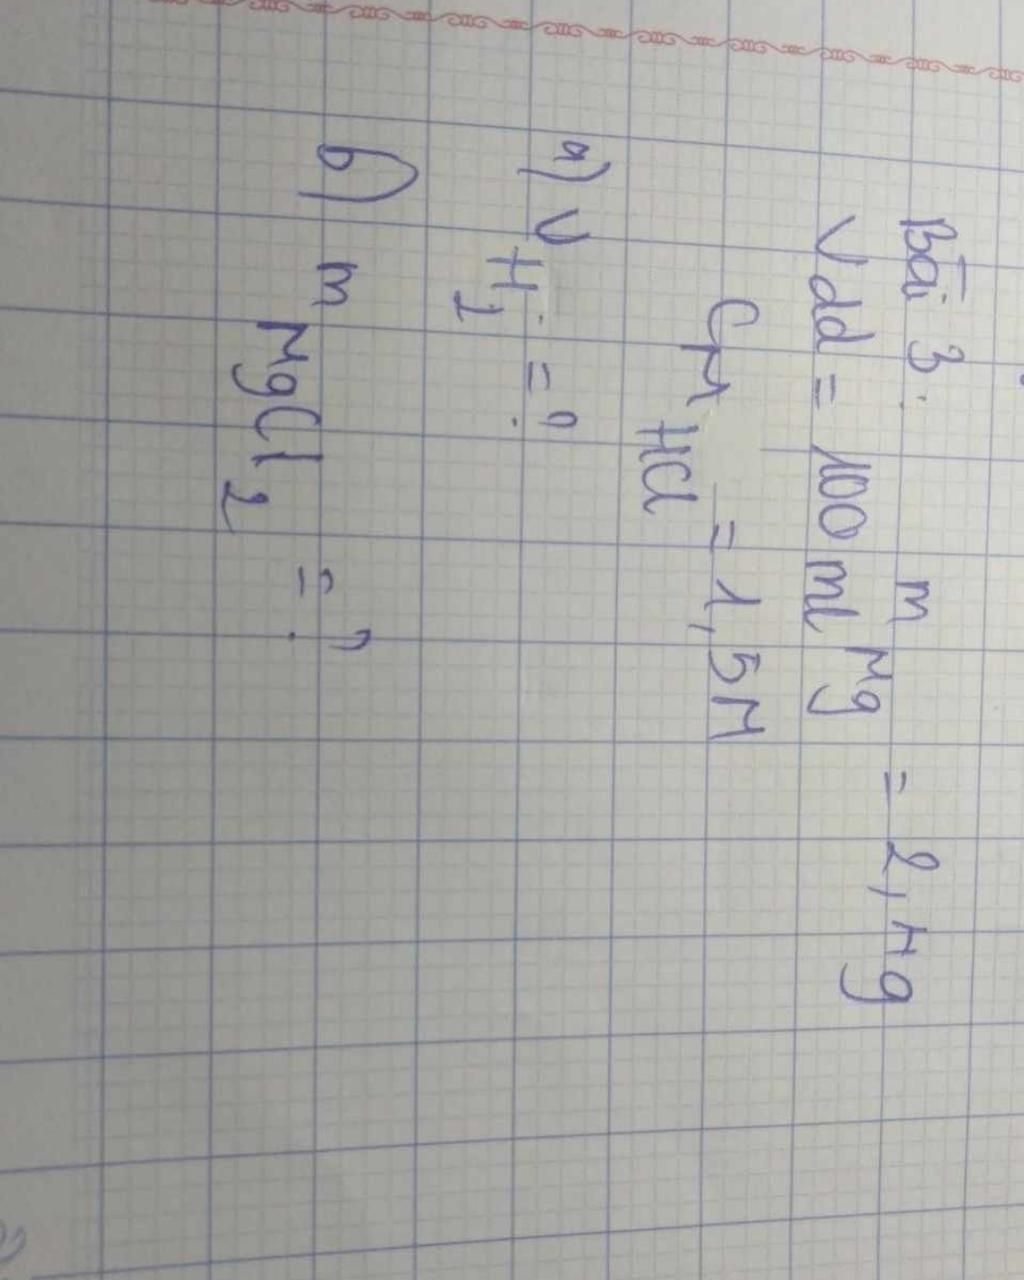 Bài 3: m Mg = 2,4g
Vdd = 100 ml
CM HCl = 1,5M
a) V H2 = ?
b) m MgCl2 = ?